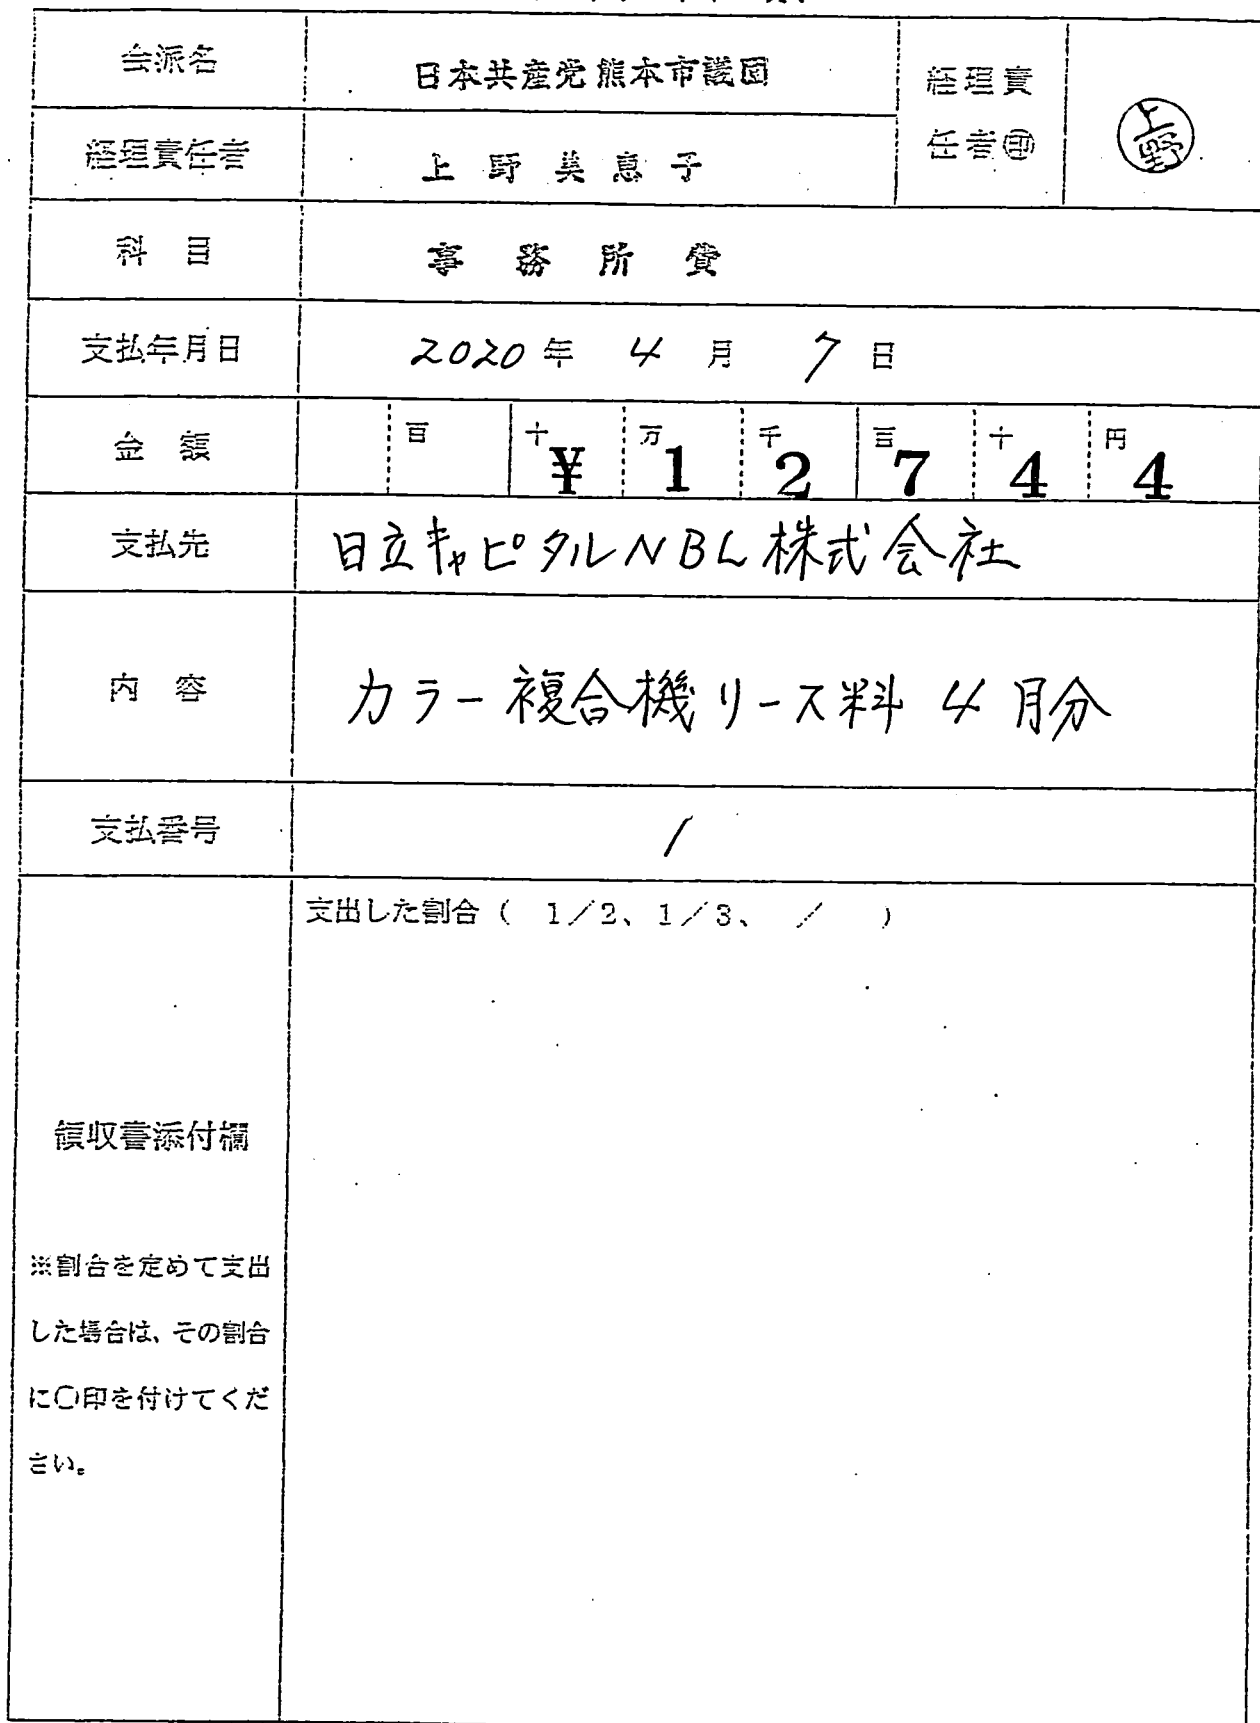 会派名 日本共産党熊本市議団
経理責任者㊞ 上野
経理責任者 上野美恵子
科目 事務所費
支払年月日 2020年 4月 7日
金額 百 十¥ 万1 千2 百7 十4 円4
支払先 日立キャピタルNBL株式会社
内容 カラー複合機リース料 4月分
支払番号 1
支出した割合( 1/2、1/3、 / )
領収書添付欄
※割合を定めて支出
した場合は、その割合
に○印を付けてくだ
さい。